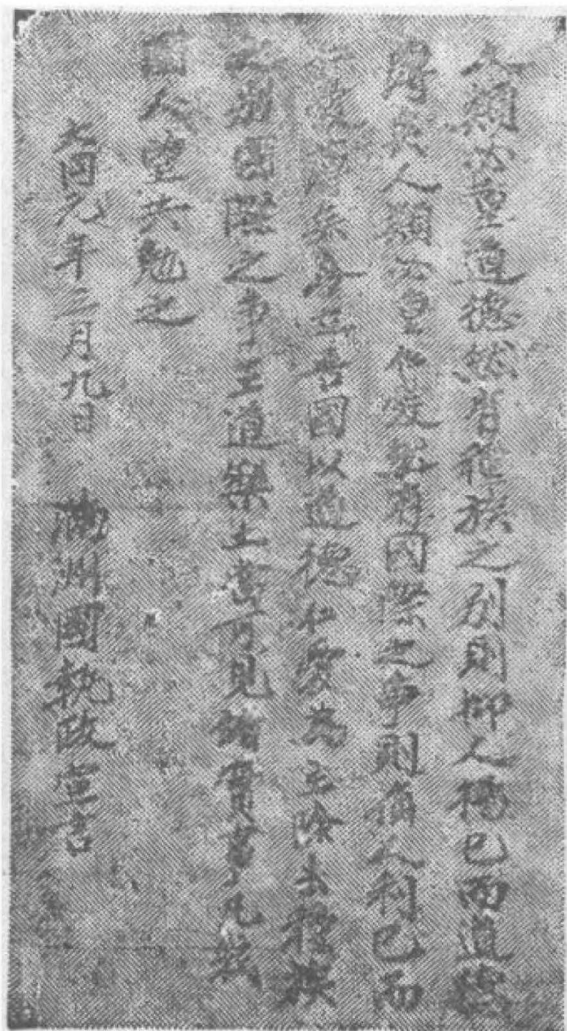 人類必重道德然有種族之別則抑人揚己而道德
薄矣人類必重仁愛然有國際之爭則損人利己而
仁愛薄矣今立吾國以道德仁愛為主除去種族
之別國際之爭王道樂土當可見諸實事凡我
國人望共勉之
大同元年三月九日　滿洲國執政宣言